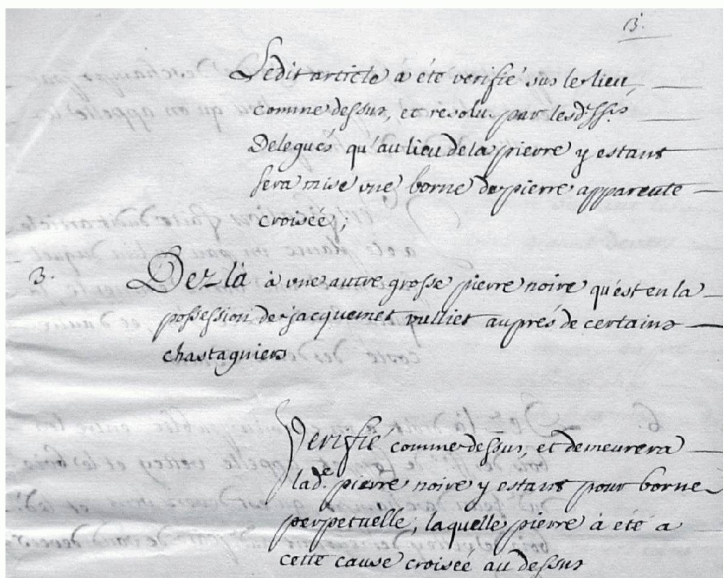 13.
Ledit article a été verifié sur le lieu
comme dessus, et resolu par lesd. ss.rs
Delegués qu'au lieu de la pierre y estant
sera mise une borne de pierre apparente
croisée;
3. Dez là à une autre grosse pierre noire qu'est en la
possession de Jacquemet vulliet auprés de certains
chastagniers
Verifié comme dessus, et demeurera
lad.e pierre noire y estant pour borne
perpetuelle, laquelle pierre à été a
cette cause croisée au dessus